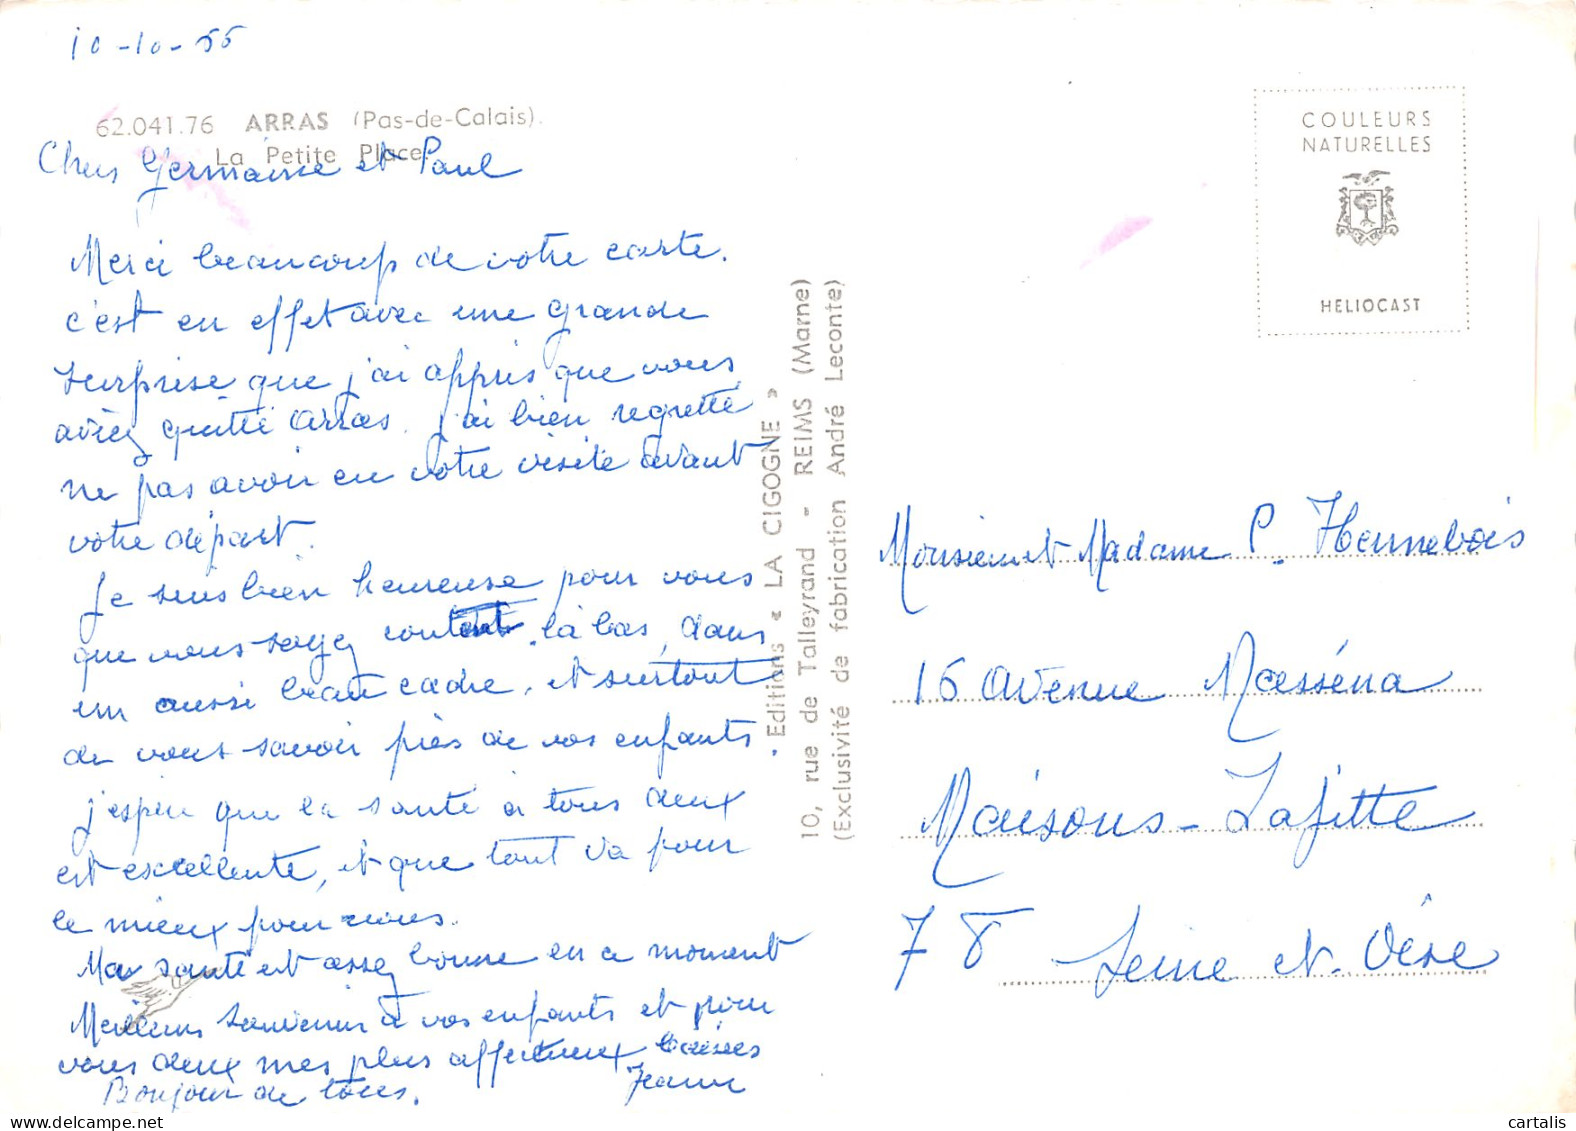 10-10-55
62.041.76 ARRAS (Pas-de-Calais).
La Petite Place.
Chers Germaine et Paul
Merci beaucoup de votre carte.
c'est en effet avec une grande
surprise que j'ai appris que vous
aviez quitté Arras. j'ai bien regretté
ne pas avoir eu votre visite avant
votre départ.
Je suis bien heureuse pour vous
que vous soyez content là bas, dans
un aussi beau cadre, et surtout
de vous savoir près de vos enfants.
j'espère que la santé à tous deux
est excellente, et que tout va pour
le mieux pour vous.
Ma santé est assez bonne en ce moment
Meilleurs souvenirs à vos enfants et pour
vous deux mes plus affectueux baisers
Jeanne
Bonjour de tous.
Editions « LA CIGOGNE »
10, rue de Talleyrand - REIMS (Marne)
(Exclusivité de fabrication André Leconte)
COULEURS
NATURELLES
HELIOCAST
Monsieur et Madame P. Hennebois
16 Avenue Masséna
Maisons-Lafitte
78 Seine et Oise
cartalis